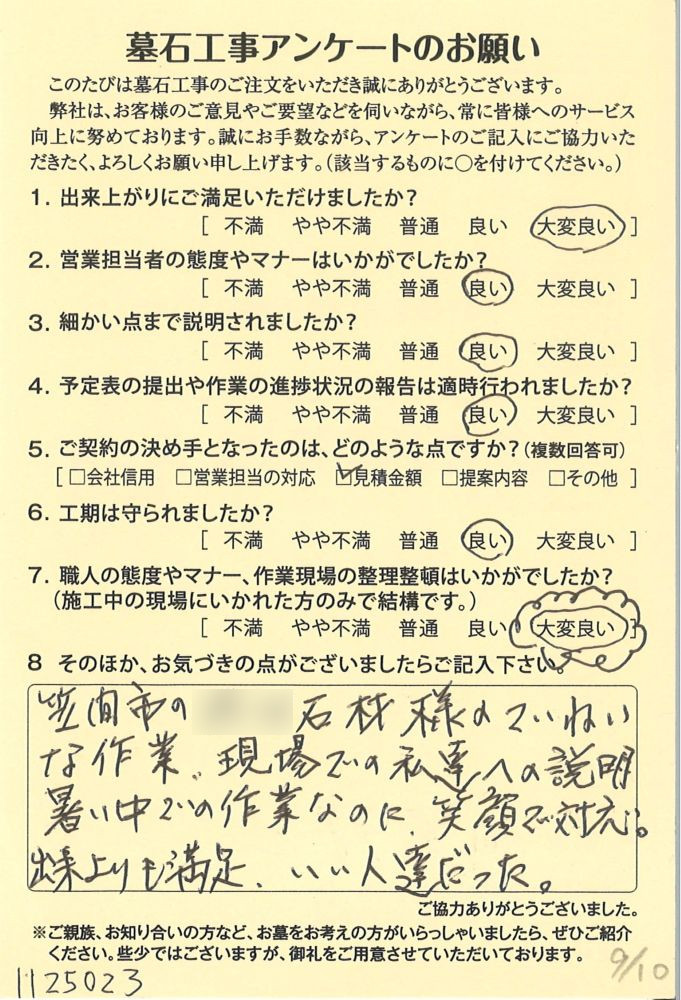 墓石工事アンケートのお願い
このたびは墓石工事のご注文をいただき誠にありがとうございます。
弊社は、お客様のご意見やご要望などを伺いながら、常に皆様へのサービス
向上に努めております。誠にお手数ながら、アンケートのご記入にご協力いた
だきたく、よろしくお願い申し上げます。（該当するものに○を付けてください。）
1. 出来上がりにご満足いただけましたか？
[ 不満 やや不満 普通 良い 大変良い ]
2. 営業担当者の態度やマナーはいかがでしたか？
[ 不満 やや不満 普通 良い 大変良い ]
3. 細かい点まで説明されましたか？
[ 不満 やや不満 普通 良い 大変良い ]
4. 予定表の提出や作業の進捗状況の報告は適時行われましたか？
[ 不満 やや不満 普通 良い 大変良い ]
5. ご契約の決め手となったのは、どのような点ですか？（複数回答可）
[ □会社信用 □営業担当の対応 ☑見積金額 □提案内容 □その他 ]
6. 工期は守られましたか？
[ 不満 やや不満 普通 良い 大変良い ]
7. 職人の態度やマナー、作業現場の整理整頓はいかがでしたか？
（施工中の現場にいかれた方のみで結構です。）
[ 不満 やや不満 普通 良い 大変良い ]
8 そのほか、お気づきの点がございましたらご記入下さい。
笠間市の 石材様のていねい
な作業、現場での私達への説明
暑い中での作業なのに、笑顔で対応。
出来上りも満足、いい人達だった。
ご協力ありがとうございました。
※ご親族、お知り合いの方など、お墓をお考えの方がいらっしゃいましたら、ぜひご紹介
ください。些少ではございますが、御礼をご用意させていただいております。
1125023
9/10